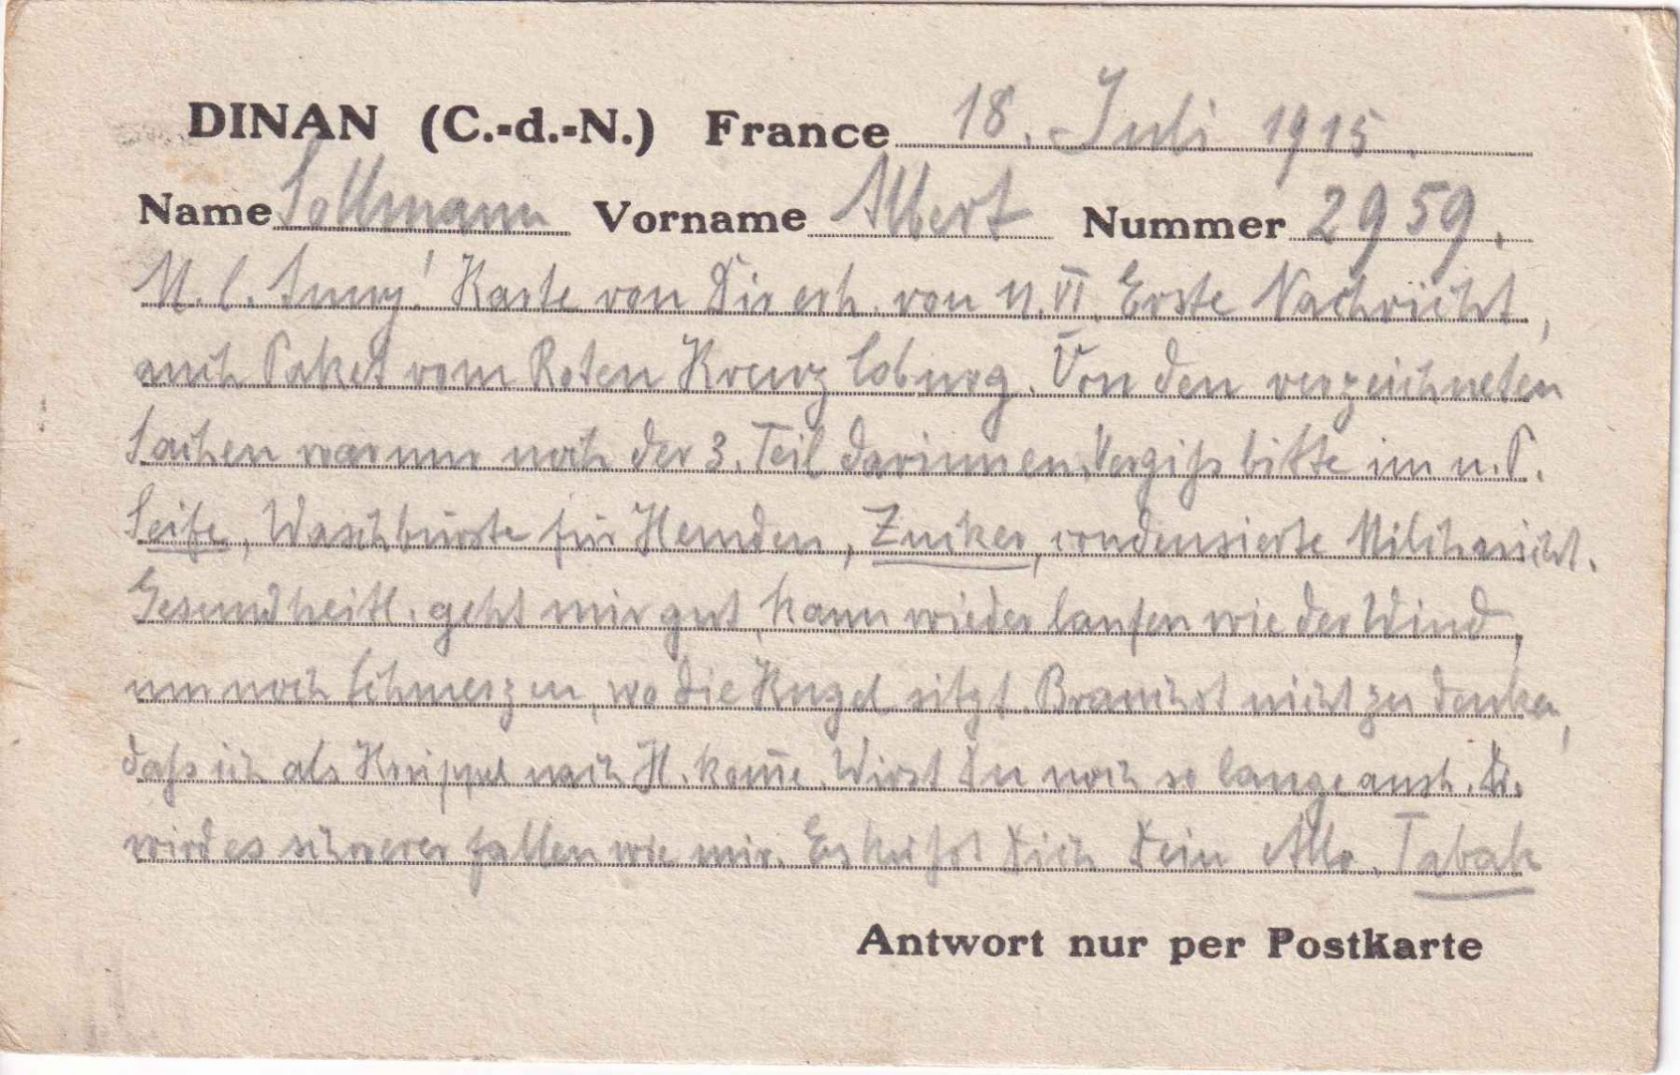 DINAN (C.-d.-N.) France 18. Juli 1915.
Name Sollmann Vorname Albert Nummer 2959.
M. l. Karte von Dir erh. von 11. VI. Erste Nachricht,
auch Paket vom Roten Kreuz Coburg. Von den verzeichneten
Sachen war nur noch der 3. Teil darinnen. Vergiß bitte im n. P.
Seife, Waschbürste für Hemden, Zucker, condensierte Milch nicht.
Gesundheitl. geht mir gut, kann wieder laufen wie der Wind,
nur noch Schmerzen, wo die Kugel sitzt. Brauchst nicht zu denken,
daß ich als Krüppel nach H. kom̄e. Wirst Du noch so lange aush. Dir
wird es schwerer fallen wie mir. Es küßt Dich Dein Tabak
Antwort nur per Postkarte